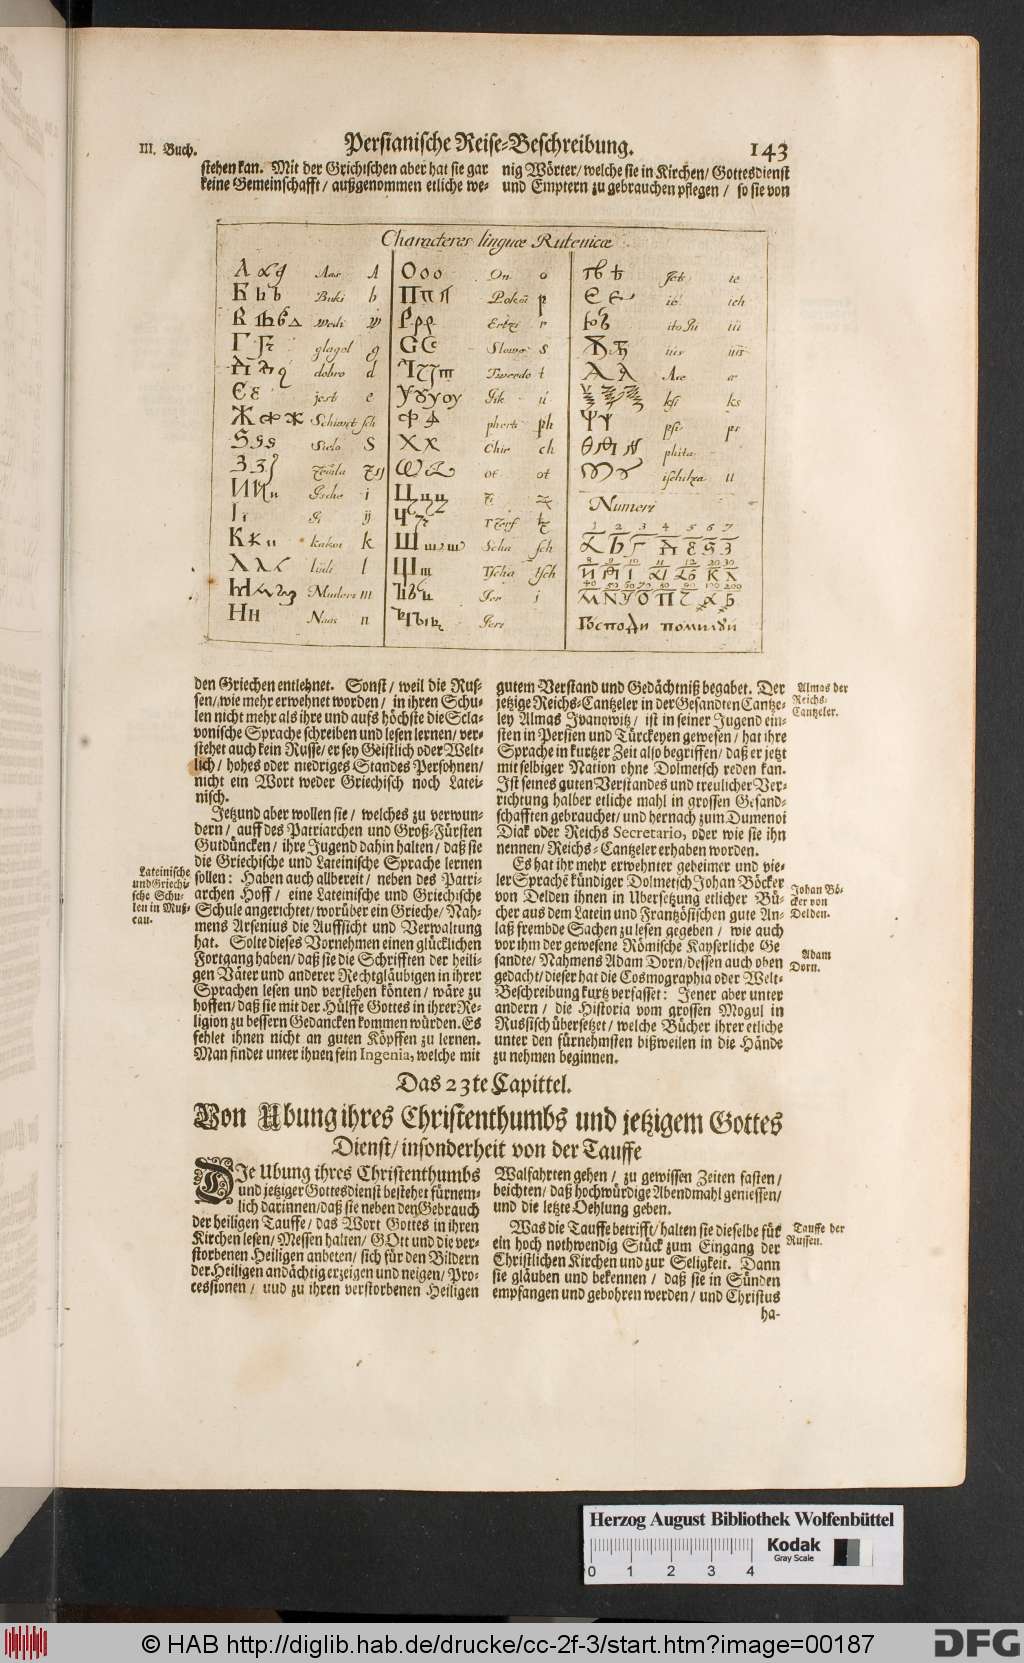 III. Buch.
Persianische Reise-Beschreibung.
143
stehen kan. Mit der Grichischen aber hat sie gar
keine Gemeinschafft / außgenommen etliche we-
nig Wörter / welche sie in Kirchen / Gottesdienst
und Emptern zu gebrauchen pflegen / so sie von
Characteres linguæ Rutenicæ
Buki b
Wedi w
glagol g
dobro d
jest e
Sielo S
i
kakoi k
lüdi l
m
Naas n
On o
Pokoi p
Ertzi r
Slowo s
Twerdo t
Jik ü
pherti ph
Chir ch
ot ot
Scha sch
Tscha tsch
Jer i
Jeri
ksi ks
psi ps
phita
Numeri
1 2 3 4 5 6 7
8 9 10 11 12 20 30
40 50 60 70 80 90 100 200
Господи помилуй
den Griechen entlehnet. Sonst / weil die Rus-
sen / wie mehr erwehnet worden / in ihren Schu-
len nicht mehr als ihre und aufs höchste die Scla-
vonische Sprache schreiben und lesen lernen / ver-
stehet auch kein Russe / er sey Geistlich oder Welt-
lich / hohes oder niedriges Standes Persohnen /
nicht ein Wort weder Griechisch noch Latei-
nisch.
Jetzund aber wollen sie / welches zu verwun-
dern / auff des Patriarchen und Groß-Fürsten
Gutdüncken / ihre Jugend dahin halten / daß sie
die Griechische und Lateinische Sprache lernen
sollen: Haben auch allbereit / neben des Patri-
archen Hoff / eine Lateinische und Griechische
Schule angerichtet / worüber ein Grieche / Nah-
mens Arsenius die Auffsicht und Verwaltung
hat. Solte dieses Vornehmen einen glücklichen
Fortgang haben / daß sie die Schrifften der heili-
gen Väter und anderer Rechtgläubigen in ihrer
Sprachen lesen und verstehen könten / wäre zu
hoffen / daß sie mit der Hülffe Gottes in ihrer Re-
ligion zu bessern Gedancken kommen würden. Es
fehlet ihnen nicht an guten Köpffen zu lernen.
Man findet unter ihnen fein Ingenia, welche mit
Lateinische
und Griechi-
sche Schu-
len in Muß-
cau.
gutem Verstand und Gedächtniß begabet. Der
jetzige Reichs-Cantzeler in der Gesandten Cantze-
ley Almas Ivanowitz / ist in seiner Jugend ein-
sten in Persien und Türckeyen gewesen / hat ihre
Sprache in kurtzer Zeit also begriffen / daß er jetzt
mit selbiger Nation ohne Dolmetsch reden kan.
Ist seines guten Verstandes und treulicher Ver-
richtung halber etliche mahl in grossen Gesand-
schafften gebrauchet / und hernach zum Dumenoi
Diak oder Reichs Secretario, oder wie sie ihn
nennen / Reichs-Cantzeler erhaben worden.
Es hat ihr mehr erwehnter geheimer und vie-
ler Sprachē kündiger Dolmetsch Johan Böcker
von Delden ihnen in Ubersetzung etlicher Bü-
cher aus dem Latein und Frantzösischen gute An-
laß frembde Sachen zu lesen gegeben / wie auch
vor ihm der gewesene Römische Kayserliche Ge
sandte / Nahmens Adam Dorn / dessen auch oben
gedacht / dieser hat die Cosmographia oder Welt-
Beschreibung kurtz verfasset: Jener aber unter
andern / die Historia vom grossen Mogul in
Russisch übersetzet / welche Bücher ihrer etliche
unter den fürnehmsten bißweilen in die Hände
zu nehmen beginnen.
Almas der
Reichs-
Cantzeler.
Johan Bö-
cker von
Delden.
Adam
Dorn.
Das 23te Capittel.
Von Ubung ihres Christenthumbs und jetzigem Gottes
Dienst / insonderheit von der Tauffe
DIe Ubung ihres Christenthumbs
und jetziger Gottesdienst bestehet fürnem-
lich darinnen / daß sie neben den Gebrauch
der heiligen Tauffe / das Wort Gottes in ihren
Kirchen lesen / Messen halten / GOtt und die ver-
storbenen Heiligen anbeten / sich für den Bildern
der Heiligen andächtig erzeigen und neigen / Pro-
cessionen / und zu ihren verstorbenen Heiligen
Walfahrten gehen / zu gewissen Zeiten fasten /
beichten / daß hochwürdige Abendmahl geniessen /
und die letzte Oehlung geben.
Was die Tauffe betrifft / halten sie dieselbe für
ein hoch nothwendig Stück zum Eingang der
Christlichen Kirchen und zur Seligkeit. Dann
sie gläuben und bekennen / daß sie in Sünden
empfangen und gebohren werden / und Christus
ha-
Tauffe der
Russen.
Herzog August Bibliothek Wolfenbüttel
Kodak
Gray Scale
0 1 2 3 4
© HAB http://diglib.hab.de/drucke/cc-2f-3/start.htm?image=00187
DFG